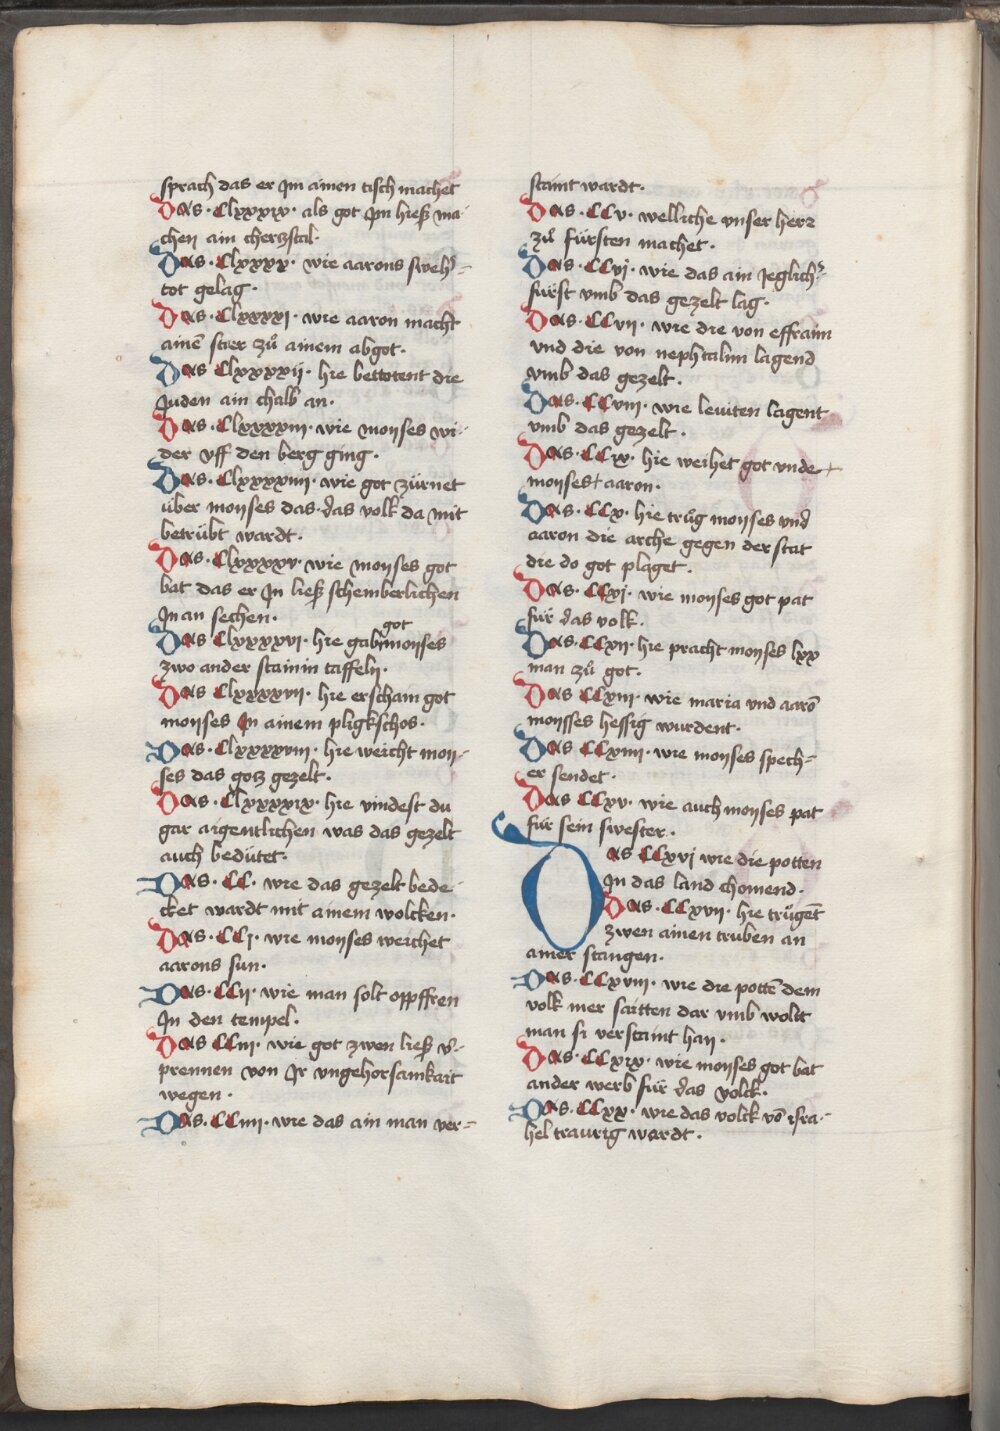 sprach das er Jm ainen tisch machet
Das · Clxxxix · als got Jm hieß ma-
chen ain cherzstal·
Das · Clxxxx · wie aarons sweh͛-
tot gelag ·
Das · Clxxxxi · wie aaron macht
ainē stier zů ainem abgot·
Das Clxxxxii · hie bettotent die
Juden ain chalb an·
Das · Clxxxxiii · wie moyses wi-
der vff den berg ging ·
Das · Clxxxxiiii · wie got zürnet
über moyses das · das volk da mit
betrübt wardt ·
Das · Clxxxxv · wie moyses got
bat das er Jn ließ scheinberlichen
Jn an sechen ·
Das Clxxxxvi · hie gab got moyses
zwo ander stainin taffeln ·
Das · Clxxxxvii · hie erscham got
moyses Jn ainem pligkschos ·
Das · Clxxxxviii · hie weicht moy-
ses das gotz gezelt ·
Das · Clxxxxix · hie vindest du
gar aigentlichen was das gezelt
auch bedütet·
Das · CC · wie das gezelt bede-
cket wardt mit ainem wolcken ·
Das · CCi · wie moyses weichet
aarons sun ·
Das · CCii · wie man solt oppffren
Jn den tempel ·
Das CCiii · wie got zwen ließ v͛-
prennen von Jr vngehorsamkait
wegen ·
Das · CCiiii · wie das ain man ver-
staint wardt ·
Das · CCv · welliche vnser herr
zů fürsten machet ·
Das · CCvj · wie das ain Jeglich͛
fürst vmb das gezelt lag ·
Das · CCvii · wie die von effraim
vnd die von nephtalim lagend
vmb das gezelt ·
Das · CCviii · wie leuiten lagent
vmb das gezelt ·
Das · CCix · hie weihet got vnde +
moyses + aaron ·
Das · CCx · hie trůg moyses vnd
aaron die arche gegen der stat
die do got plaget ·
Das · CCxj · wie moyses got pat
für das volk ·
Das · CCxii · hie pracht moyses lxx
man zů got ·
Das CCxiii · wie maria vnd aarō
moysses hessig wurdent ·
Das CCxiiii · wie moyses spech-
er sendet ·
Das CCxv · wie auch moyses pat
für sein swester ·
Das CCxvj wie die potten
Jn das land chomend ·
Das · CCxvii · hie trůgēt
zwen ainen truben an
ainer stangen ·
Das · CCxviii · wie die pottē dem
volk mer saitten dar vmb wolt
man si verstaint han ·
Das · CCxix · wie moyses got bat
ander werb für das volck ·
Das · CCxx · wie das volck vō isra-
hel traurig wardt ·